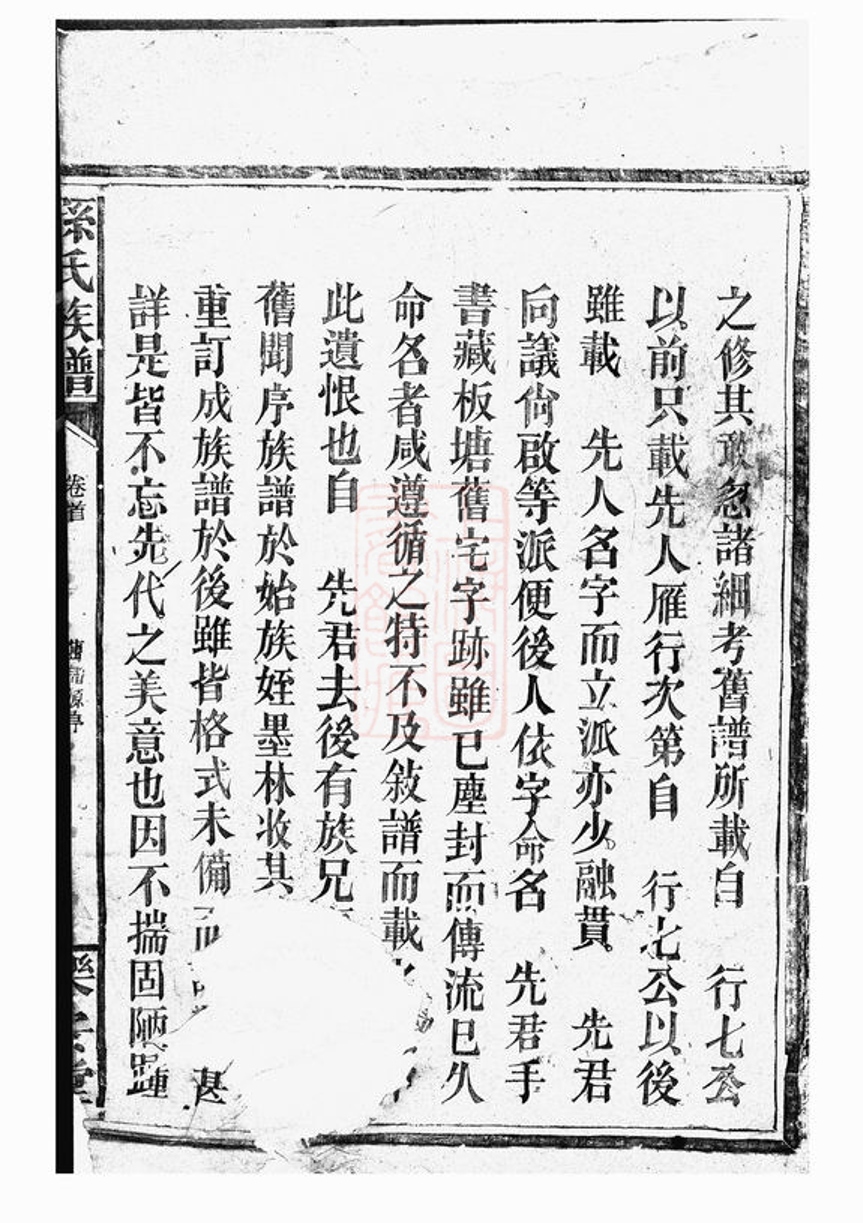 之修其敢忽諸細考舊譜所載自　行七公
以前只載先人雁行次第自　行七公以後
雖載　先人名字而立派亦少融貫　先君
向議尙啟等派便後人依字命名　先君手
書藏板塘舊宅字跡雖已塵封而傳流已久
命名者咸遵循之特不及敘譜而載
此遺恨也自　先君去後有族兄
舊聞序族譜於始族姪墨林收其
重訂成族譜於後雖皆格式未備而　甚
詳是皆不忘先代之美意也因不揣固陋踵
孫氏族譜
卷首
舊譜源亭
樂安堂